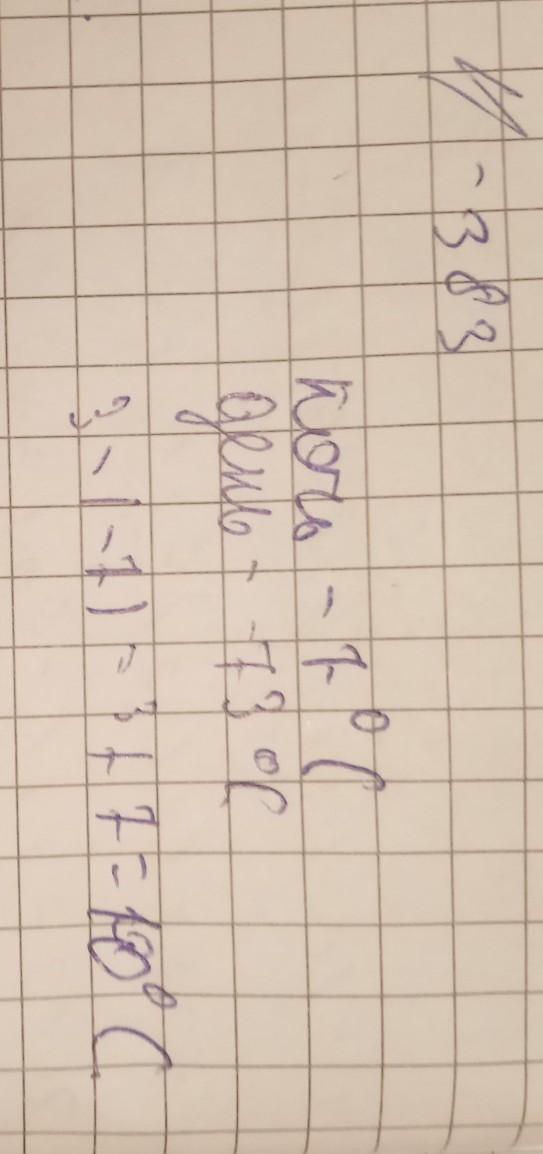 № - 383
ночь - 7 °C
день - +3 °C
3 - (-7) = 3 + 7 = 10 °C